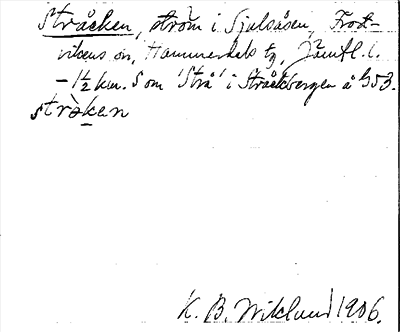 Stråcken, ström i Sjulsåsen, Frost-
vikens sn, Hammerdals tg, Jämtl. l.
– 1½ km. Som 'Strå' i Stråckbergen å 953.
stråken
K. B. Wiklund 1906.